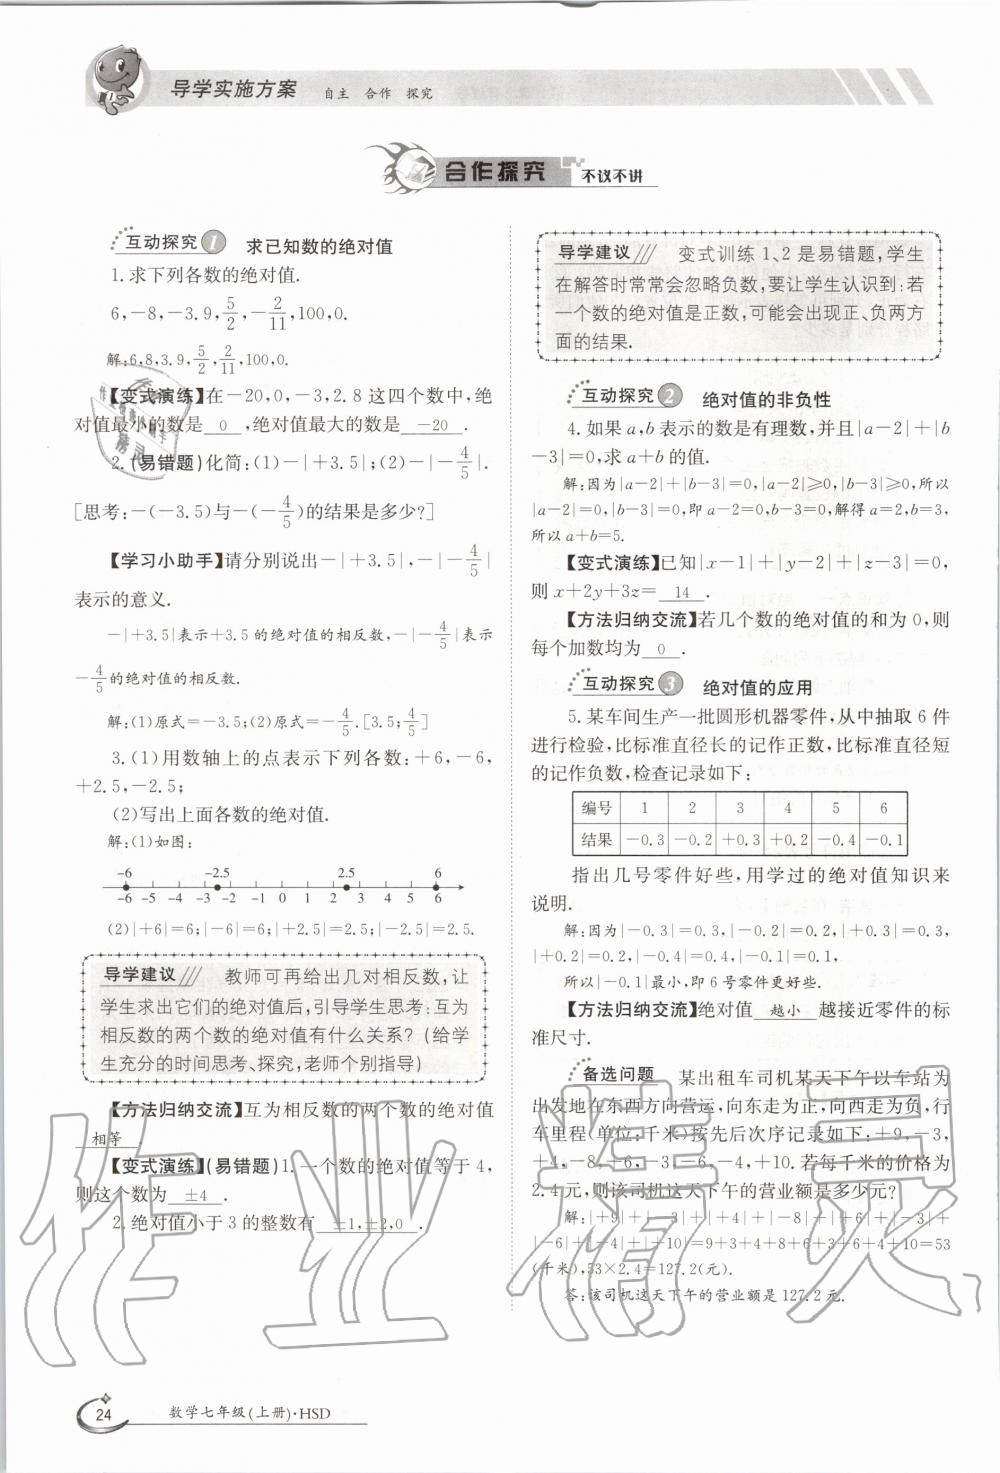 导学实施方案 自主 合作 探究
合作探究 不议不讲
互动探究1 求已知数的绝对值
1.求下列各数的绝对值.
6,-8,-3.9,5/2,-2/11,100,0.
解:6,8,3.9,5/2,2/11,100,0.
【变式演练】在-20,0,-3,2.8这四个数中,绝
对值最小的数是 0 ,绝对值最大的数是 -20 .
2.(易错题)化简:(1)-|+3.5|;(2)-|-4/5|.
[思考:-(-3.5)与-(-4/5)的结果是多少?]
【学习小助手】请分别说出-|+3.5|,-|-4/5|
表示的意义.
-|+3.5|表示+3.5的绝对值的相反数,-|-4/5|表示
-4/5的绝对值的相反数.
解:(1)原式=-3.5;(2)原式=-4/5.[3.5;4/5]
3.(1)用数轴上的点表示下列各数:+6,-6,
+2.5,-2.5;
(2)写出上面各数的绝对值.
解:(1)如图:
-6 -2.5 2.5 6
-6 -5 -4 -3 -2 -1 0 1 2 3 4 5 6
(2)|+6|=6;|-6|=6;|+2.5|=2.5;|-2.5|=2.5.
导学建议 教师可再给出几对相反数,让
学生求出它们的绝对值后,引导学生思考:互为
相反数的两个数的绝对值有什么关系?(给学
生充分的时间思考、探究,老师个别指导)
【方法归纳交流】互为相反数的两个数的绝对值
相等 .
【变式演练】(易错题)1.一个数的绝对值等于4,
则这个数为 ±4 .
2.绝对值小于3的整数有 ±1,±2,0 .
导学建议 变式训练1、2是易错题,学生
在解答时常常会忽略负数,要让学生认识到:若
一个数的绝对值是正数,可能会出现正、负两方
面的结果.
互动探究2 绝对值的非负性
4.如果a,b表示的数是有理数,并且|a-2|+|b
-3|=0,求a+b的值.
解:因为|a-2|+|b-3|=0,|a-2|≥0,|b-3|≥0,所以
|a-2|=0,|b-3|=0,即a-2=0,b-3=0,解得a=2,b=3,
所以a+b=5.
【变式演练】已知|x-1|+|y-2|+|z-3|=0,
则x+2y+3z= 14 .
【方法归纳交流】若几个数的绝对值的和为0,则
每个加数均为 0 .
互动探究3 绝对值的应用
5.某车间生产一批圆形机器零件,从中抽取6件
进行检验,比标准直径长的记作正数,比标准直径短
的记作负数,检查记录如下:
编号 1 2 3 4 5 6
结果 -0.3 -0.2 +0.3 +0.2 -0.4 -0.1
指出几号零件好些,用学过的绝对值知识来
说明.
解:因为|-0.3|=0.3,|-0.2|=0.2,|+0.3|=0.3,
|+0.2|=0.2,|-0.4|=0.4,|-0.1|=0.1,
所以|-0.1|最小,即6号零件更好些.
【方法归纳交流】绝对值 越小 越接近零件的标
准尺寸.
备选问题 某出租车司机某天下午以车站为
出发地在东西方向营运,向东走为正,向西走为负,行
车里程(单位:千米)按先后次序记录如下:+9,-3,
+4,-8,+6,-3,-6,-4,+10.若每千米的价格为
2.4元,则该司机这天下午的营业额是多少元?
解:|+9|+|-3|+|+4|+|-8|+|+6|+|-3|+
|-6|+|-4|+|+10|=9+3+4+8+6+3+6+4+10=53
(千米),53×2.4=127.2(元).
答:该司机这天下午的营业额是127.2元.
作业精灵
24 数学七年级(上册)·HSD